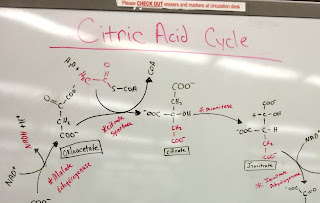 Please CHECK OUT erasers and markers at circulation desk
Citric Acid Cycle
H₂O
S-COA
COA
COO⁻
CH₂
COO⁻
Oxaloacetate
*Citrate
Synthase
COO⁻
CH₂
⁻OOC-C-OH
CH₂
COO⁻
Citrate
COO⁻
⁻OOC-C-H
COO⁻
Isocitrate
NADH + H⁺
NAD⁺
*Malate
Dehydrogenase
*Isocitrate
Dehydrogenase
NAD⁺
COO⁻